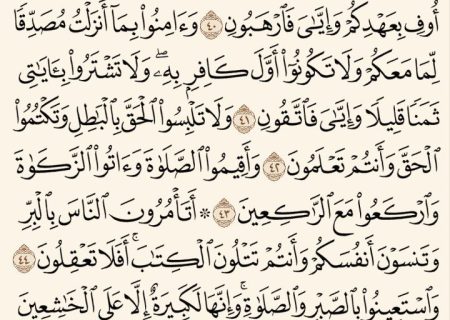 أُوفِ بِعَهۡدِكُمۡ وَإِيَّٰيَ فَٱرۡهَبُونِ ٤٠ وَءَامِنُواْ بِمَآ أَنزَلۡتُ مُصَدِّقٗا
لِّمَا مَعَكُمۡ وَلَا تَكُونُوٓاْ أَوَّلَ كَافِرِۭ بِهِۦۖ وَلَا تَشۡتَرُواْ بِـَٔايَٰتِي
ثَمَنٗا قَلِيلٗا وَإِيَّٰيَ فَٱتَّقُونِ ٤١ وَلَا تَلۡبِسُواْ ٱلۡحَقَّ بِٱلۡبَٰطِلِ وَتَكۡتُمُواْ
ٱلۡحَقَّ وَأَنتُمۡ تَعۡلَمُونَ ٤٢ وَأَقِيمُواْ ٱلصَّلَوٰةَ وَءَاتُواْ ٱلزَّكَوٰةَ
وَٱرۡكَعُواْ مَعَ ٱلرَّٰكِعِينَ ٤٣ ۞ أَتَأۡمُرُونَ ٱلنَّاسَ بِٱلۡبِرِّ
وَتَنسَوۡنَ أَنفُسَكُمۡ وَأَنتُمۡ تَتۡلُونَ ٱلۡكِتَٰبَۚ أَفَلَا تَعۡقِلُونَ ٤٤
وَٱسۡتَعِينُواْ بِٱلصَّبۡرِ وَٱلصَّلَوٰةِۚ وَإِنَّهَا لَكَبِيرَةٌ إِلَّا عَلَى ٱلۡخَٰشِعِينَ